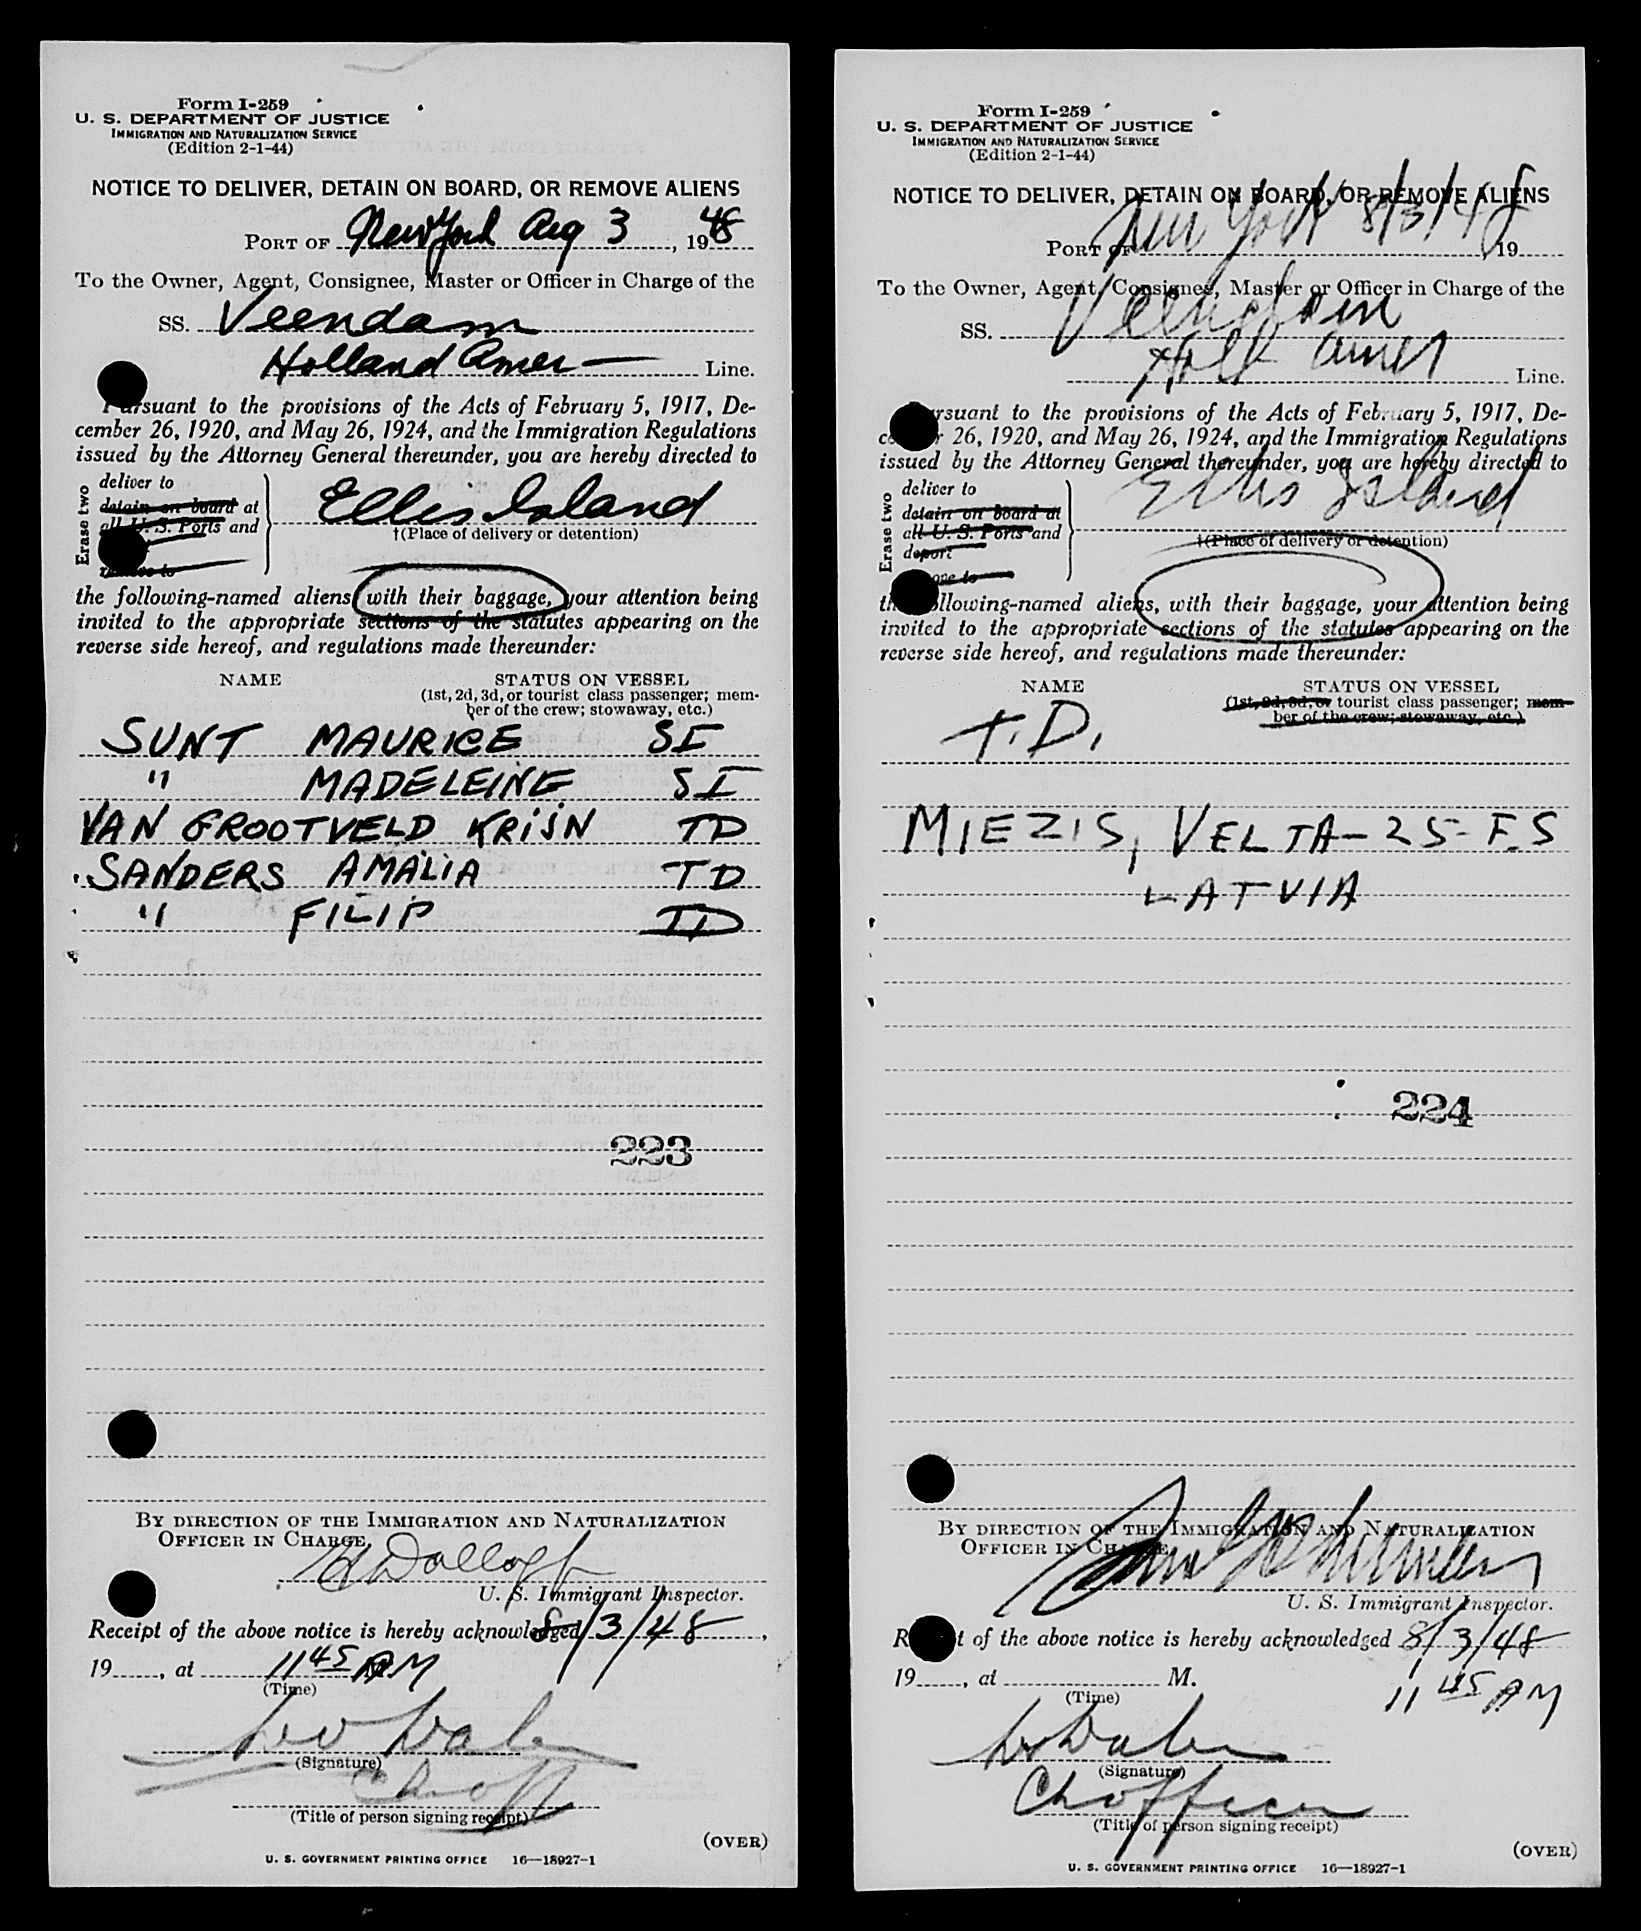 Form I-259
U. S. DEPARTMENT OF JUSTICE
IMMIGRATION AND NATURALIZATION SERVICE
(Edition 2-1-44)
NOTICE TO DELIVER, DETAIN ON BOARD, OR REMOVE ALIENS
PORT OF New York Aug 3, 1948
To the Owner, Agent, Consignee, Master or Officer in Charge of the
SS. Veendam
Holland Amer— Line.
Pursuant to the provisions of the Acts of February 5, 1917, De-
cember 26, 1920, and May 26, 1924, and the Immigration Regulations
issued by the Attorney General thereunder, you are hereby directed to
Erase two
deliver to
detain on board at
all U. S. Ports and
remove to
Ellis Island
†(Place of delivery or detention)
the following-named aliens, with their baggage, your attention being
invited to the appropriate sections of the statutes appearing on the
reverse side hereof, and regulations made thereunder:
NAME STATUS ON VESSEL
(1st, 2d, 3d, or tourist class passenger; mem-
ber of the crew; stowaway, etc.)
SUNT MAURICE SI
" MADELEINE SI
VAN GROOTVELD KRIJN TD
SANDERS AMALIA TD
" FILIP TD
223
BY DIRECTION OF THE IMMIGRATION AND NATURALIZATION
OFFICER IN CHARGE,
U. S. Immigrant Inspector.
Receipt of the above notice is hereby acknowledged 8/3/48,
19......, at 11 45 AM
(Time)
(Signature)
Ch off
(Title of person signing receipt)
(OVER)
U. S. GOVERNMENT PRINTING OFFICE 16—18927-1
Form I-259
U. S. DEPARTMENT OF JUSTICE
IMMIGRATION AND NATURALIZATION SERVICE
(Edition 2-1-44)
NOTICE TO DELIVER, DETAIN ON BOARD, OR REMOVE ALIENS
PORT OF New York 8/3/48, 19
To the Owner, Agent, Consignee, Master or Officer in Charge of the
SS. Veendam
Holl Amer Line.
Pursuant to the provisions of the Acts of February 5, 1917, De-
cember 26, 1920, and May 26, 1924, and the Immigration Regulations
issued by the Attorney General thereunder, you are hereby directed to
Erase two
deliver to
detain on board at
all U. S. Ports and
deport
remove to
Ellis Island
†(Place of delivery or detention)
the following-named aliens, with their baggage, your attention being
invited to the appropriate sections of the statutes appearing on the
reverse side hereof, and regulations made thereunder:
NAME STATUS ON VESSEL
(1st, 2d, 3d, or tourist class passenger; mem-
ber of the crew; stowaway, etc.)
T.D.
MIEZIS, VELTA—25-F.S
LATVIA
224
BY DIRECTION OF THE IMMIGRATION AND NATURALIZATION
OFFICER IN CHARGE,
U. S. Immigrant Inspector.
Receipt of the above notice is hereby acknowledged 8/3/48
19......, at M.
11 45 AM
(Time)
(Signature)
Ch officer
(Title of person signing receipt)
(OVER)
U. S. GOVERNMENT PRINTING OFFICE 16—18927-1